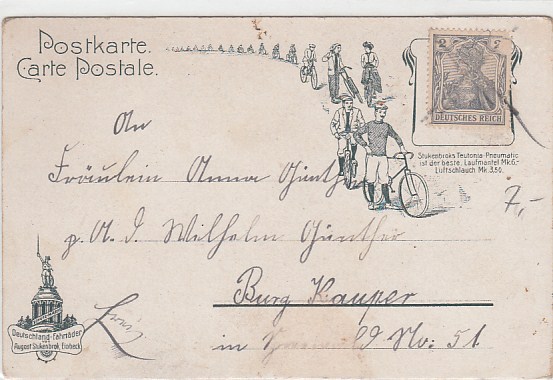 Postkarte.
Carte Postale.
2 2
DEUTSCHES REICH
Stukenbroks Teutonia-Pneumatic
ist der beste. Laufmantel Mk.6.-
Luftschlauch Mk.3,50.
7,-
An
Fräulein Anna Günther
p. A. d. Wilhelm Günther
Burg Kauper
in No: 51
Deutschland-Fahrräder
August Stukenbrok, Einbeck